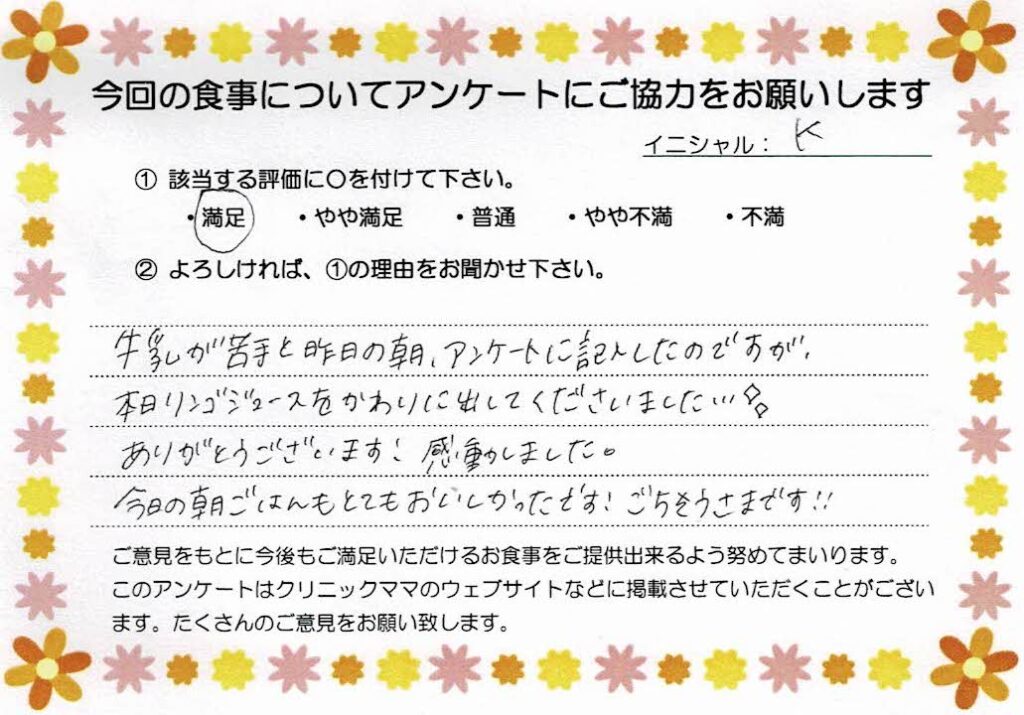 今回の食事についてアンケートにご協力をお願いします
イニシャル： K
① 該当する評価に〇を付けて下さい。
・満足 ・やや満足 ・普通 ・やや不満 ・不満
② よろしければ、①の理由をお聞かせ下さい。
牛乳が苦手と昨日の朝、アンケートに記入したのですが、
本日リンゴジュースをかわりに出してくださいました…
ありがとうございます！感動しました。
今日の朝ごはんもとてもおいしかったです！ごちそうさまです!!
ご意見をもとに今後もご満足いただけるお食事をご提供出来るよう努めてまいります。
このアンケートはクリニックママのウェブサイトなどに掲載させていただくことがござい
ます。たくさんのご意見をお願い致します。